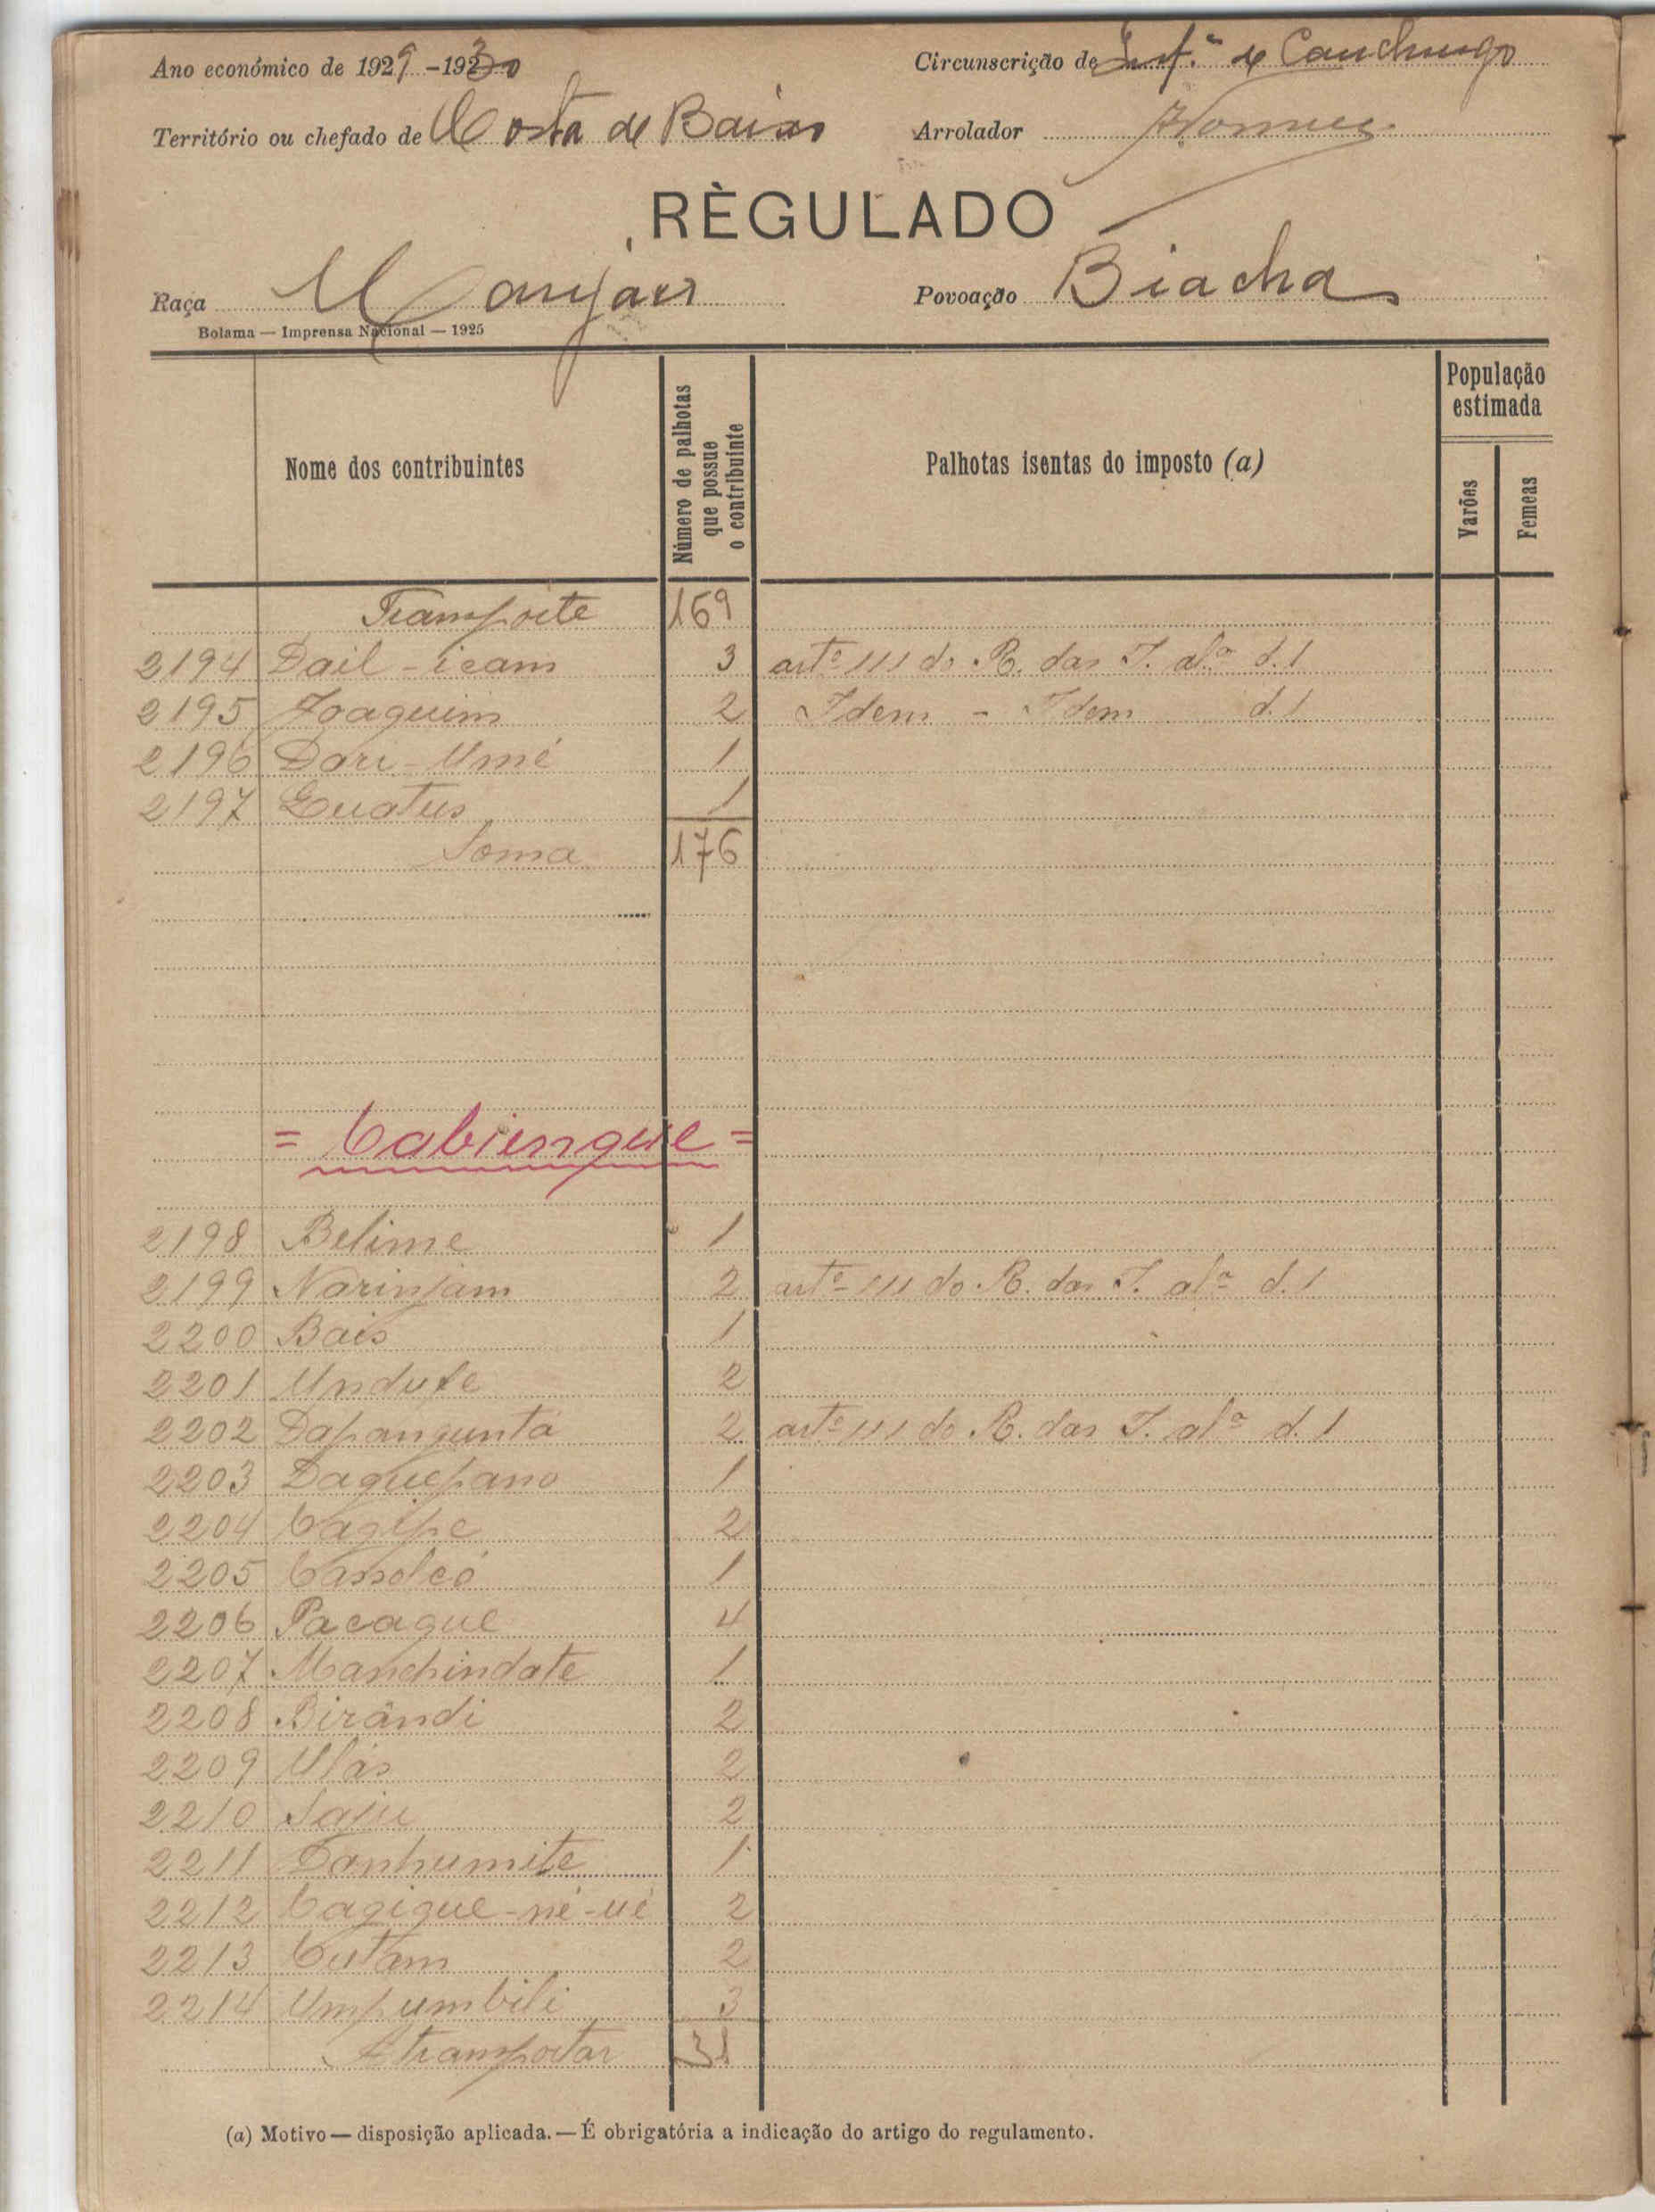 Ano económico de 1929-1930
Circunscrição de Int.ª de Canchungo
Território ou chefado de Costa de Baixo
Arrolador
RÈGULADO
Raça Manjaca
Povoação Biacha
Bolama — Imprensa Nacional — 1925
Nome dos contribuintes
Número de palhotas que possue o contribuinte
Palhotas isentas do imposto (a)
População estimada
Varões
Femeas
Transporte 169
2194 Dail-icam 3 artº 111 do R. das I. alª d.1
2195 Joaquim 2 Idem - Idem d.1
2196 Dori-Umé 1
2197 Quatus 1
Soma 176
= Cabienque =
2198 Belime 1
2199 Narinjam 2 artº 111 do R. das I. alª d.1
2200 Bais 1
2201 Undute 2
2202 Dapanguntá 2 artº 111 do R. das I. alª d.1
2203 Daguepano 1
2204 Cagipe 2
2205 Cassoleó 1
2206 Pacaque 4
2207 Manchindate 1
2208 Birândi 2
2209 Ulás 2
2210 Saju 2
2211 Danhumite 1
2212 Cagigue-né-ué 2
2213 Cutam 2
2214 Umpumbili 3
A transportar 31
(a) Motivo — disposição aplicada. — É obrigatória a indicação do artigo do regulamento.